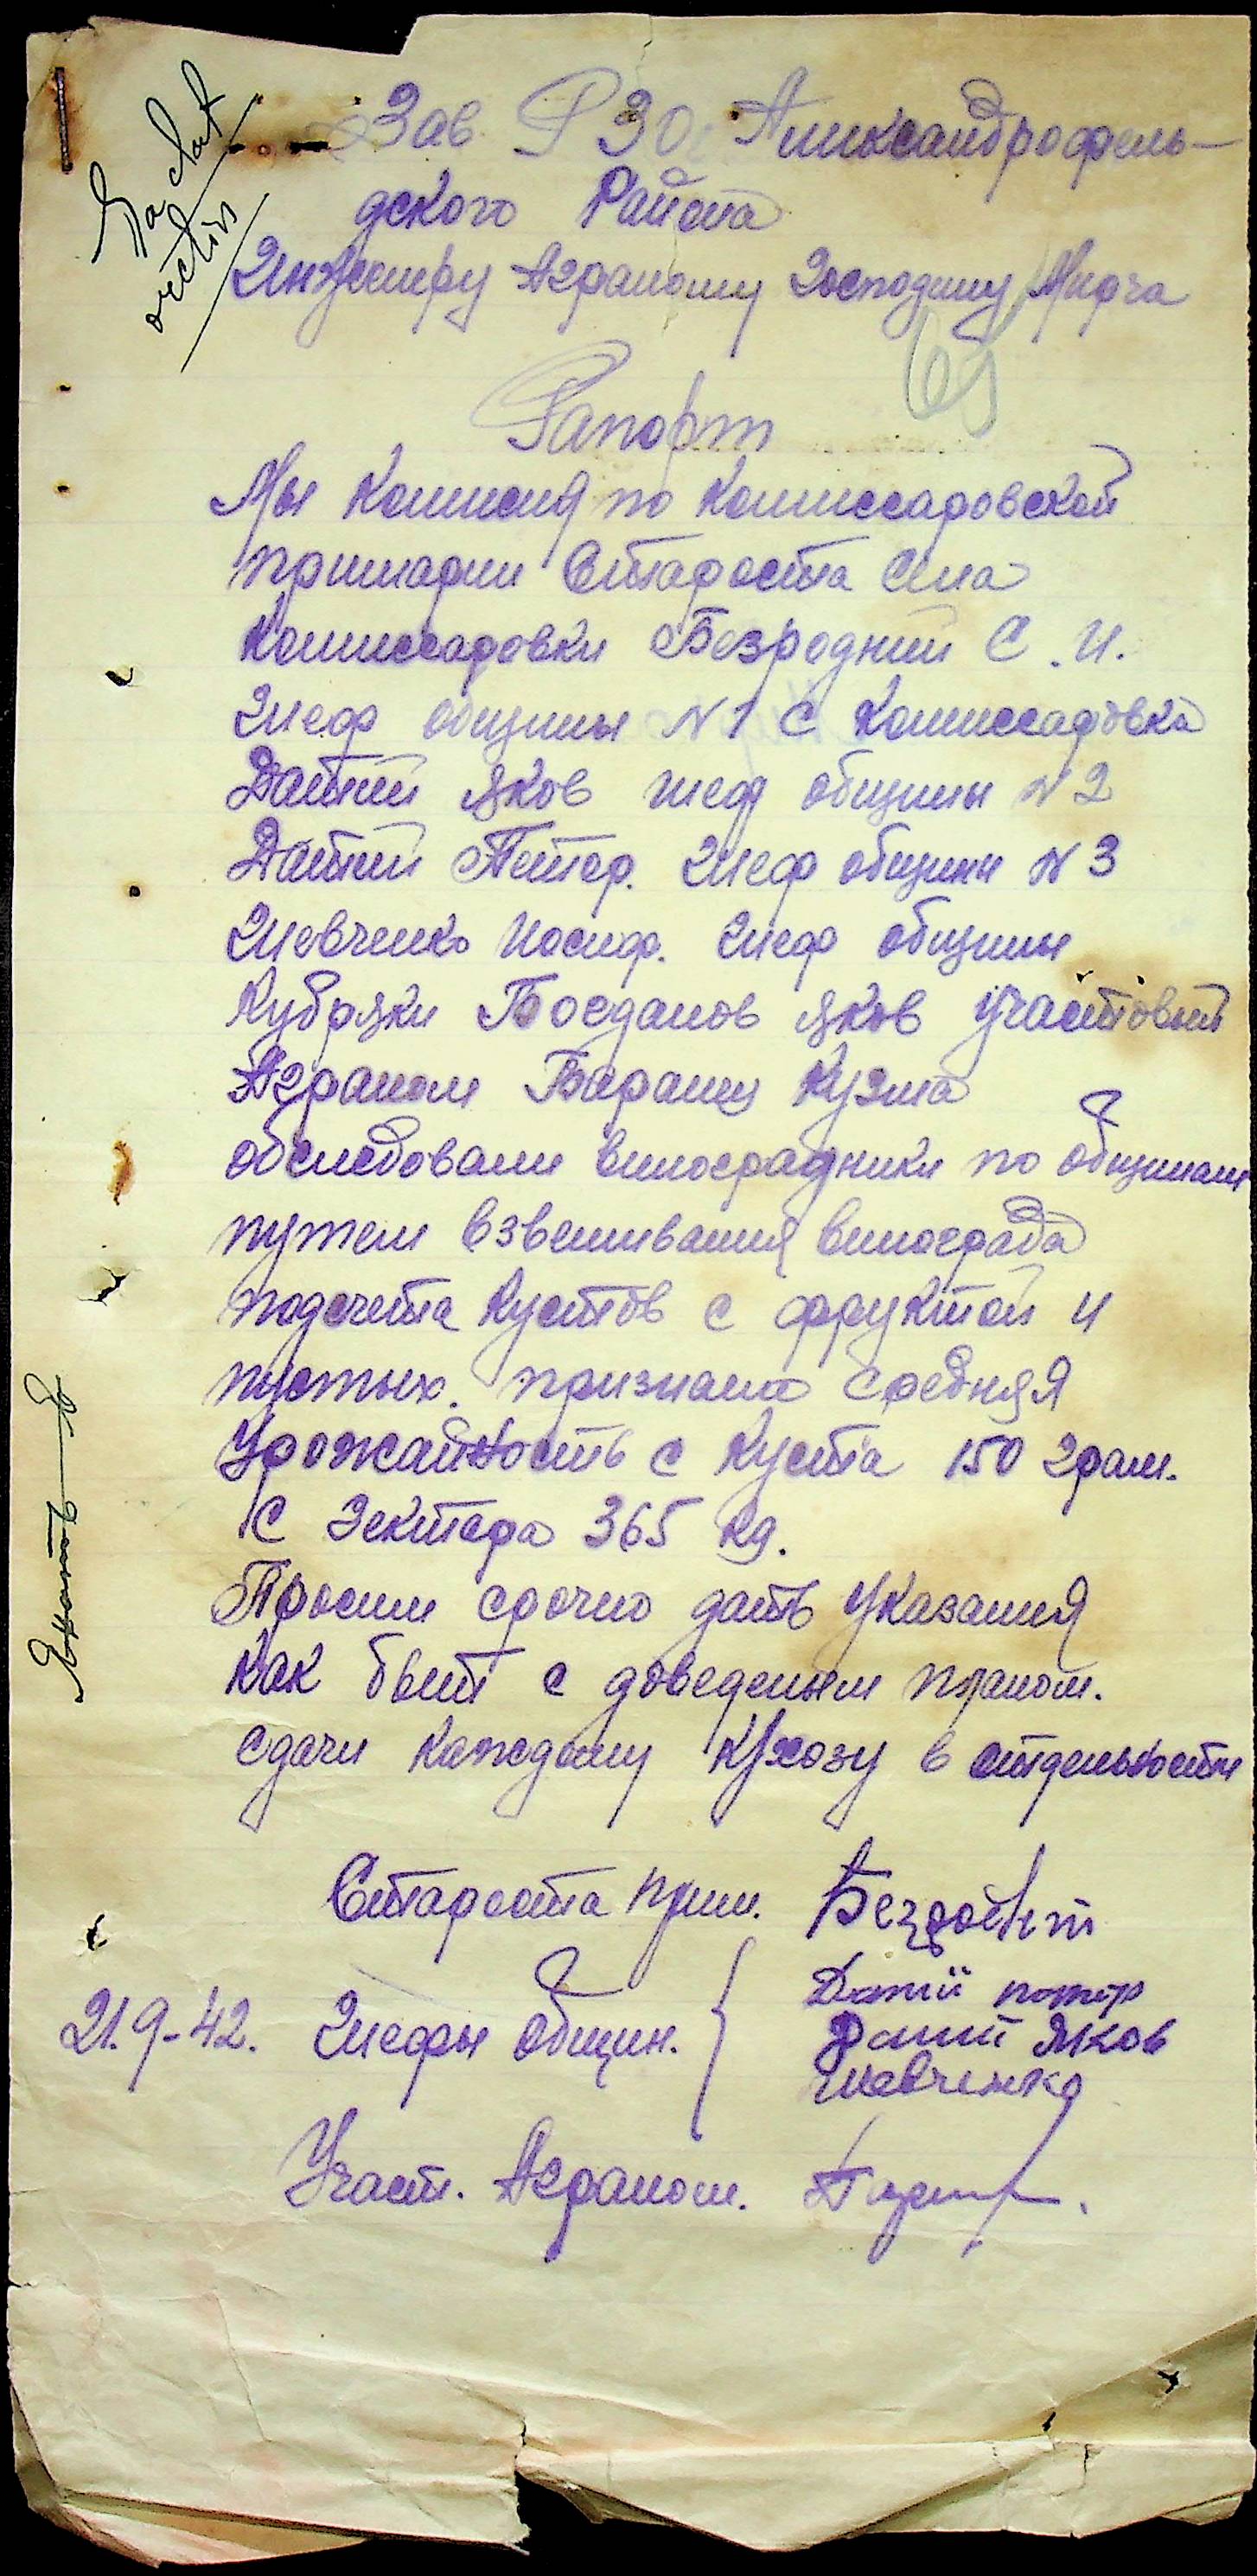 Зав. РЗО. Аликсандрофель-
дского Района
Инженеру Аграному Господину Мирча
69
Рапорт
Мы комисия по Комиссаровской
примарии Староста села
Комиссаровки Безродний С. И.
Шеф общины N 1 с Комиссаровка
Датий Яков шеф общины N 2
Датий Петор. Шеф общины N 3
Шевченко Иосиф. Шеф общины
Кубряки Богданов Яков участовый
Аграном Баранец Кузма
обследовали виноградники по общинам
путем взвешивания винограда
подсчета кустов с фруктой и
пустых. признана средняя
Урожайность с куста 150 грам.
С Гектара 365 кг.
Просим срочно дать указания
как быт с доведеным планом.
сдачи каждому к/хозу в отдельности
Староста прим.
21.9-42. Шефы общин. Датий потір
Датий Яков
шевченко
Участ. Аграном.